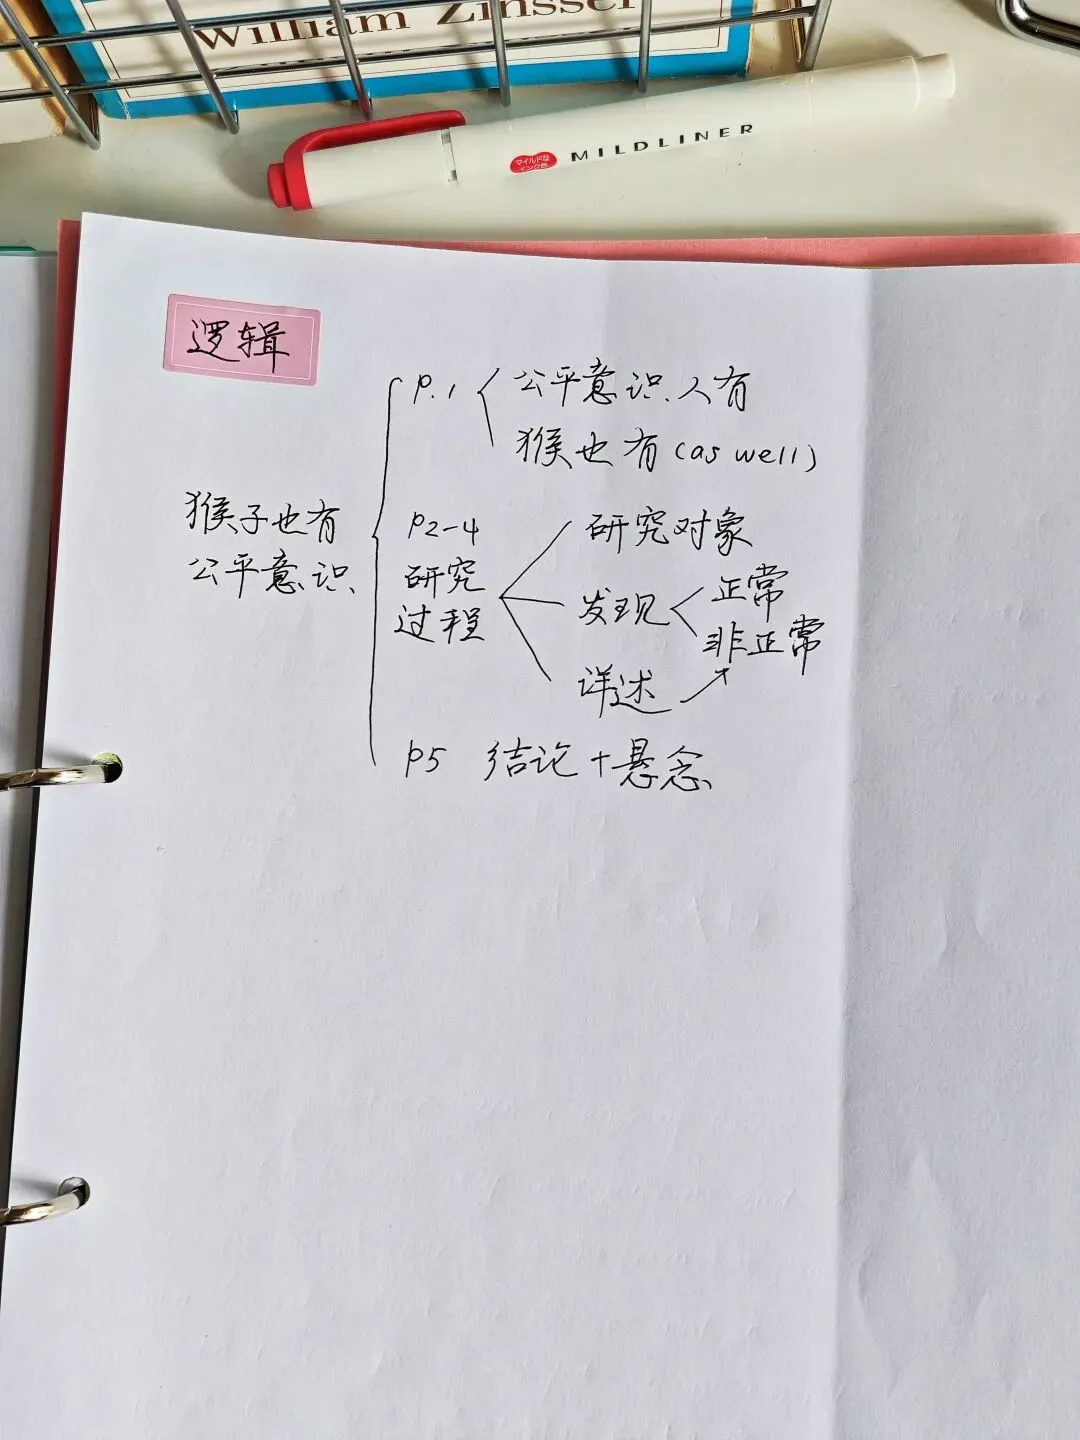 William Zinsser
マイルドな
インク色
MILDLINER
逻辑
p.1
公平意识.人有
猴也有(as well)
猴子也有
公平意识.
p2-4
研究
过程
研究对象
发现
正常
非正常
详述
p5 结论+悬念